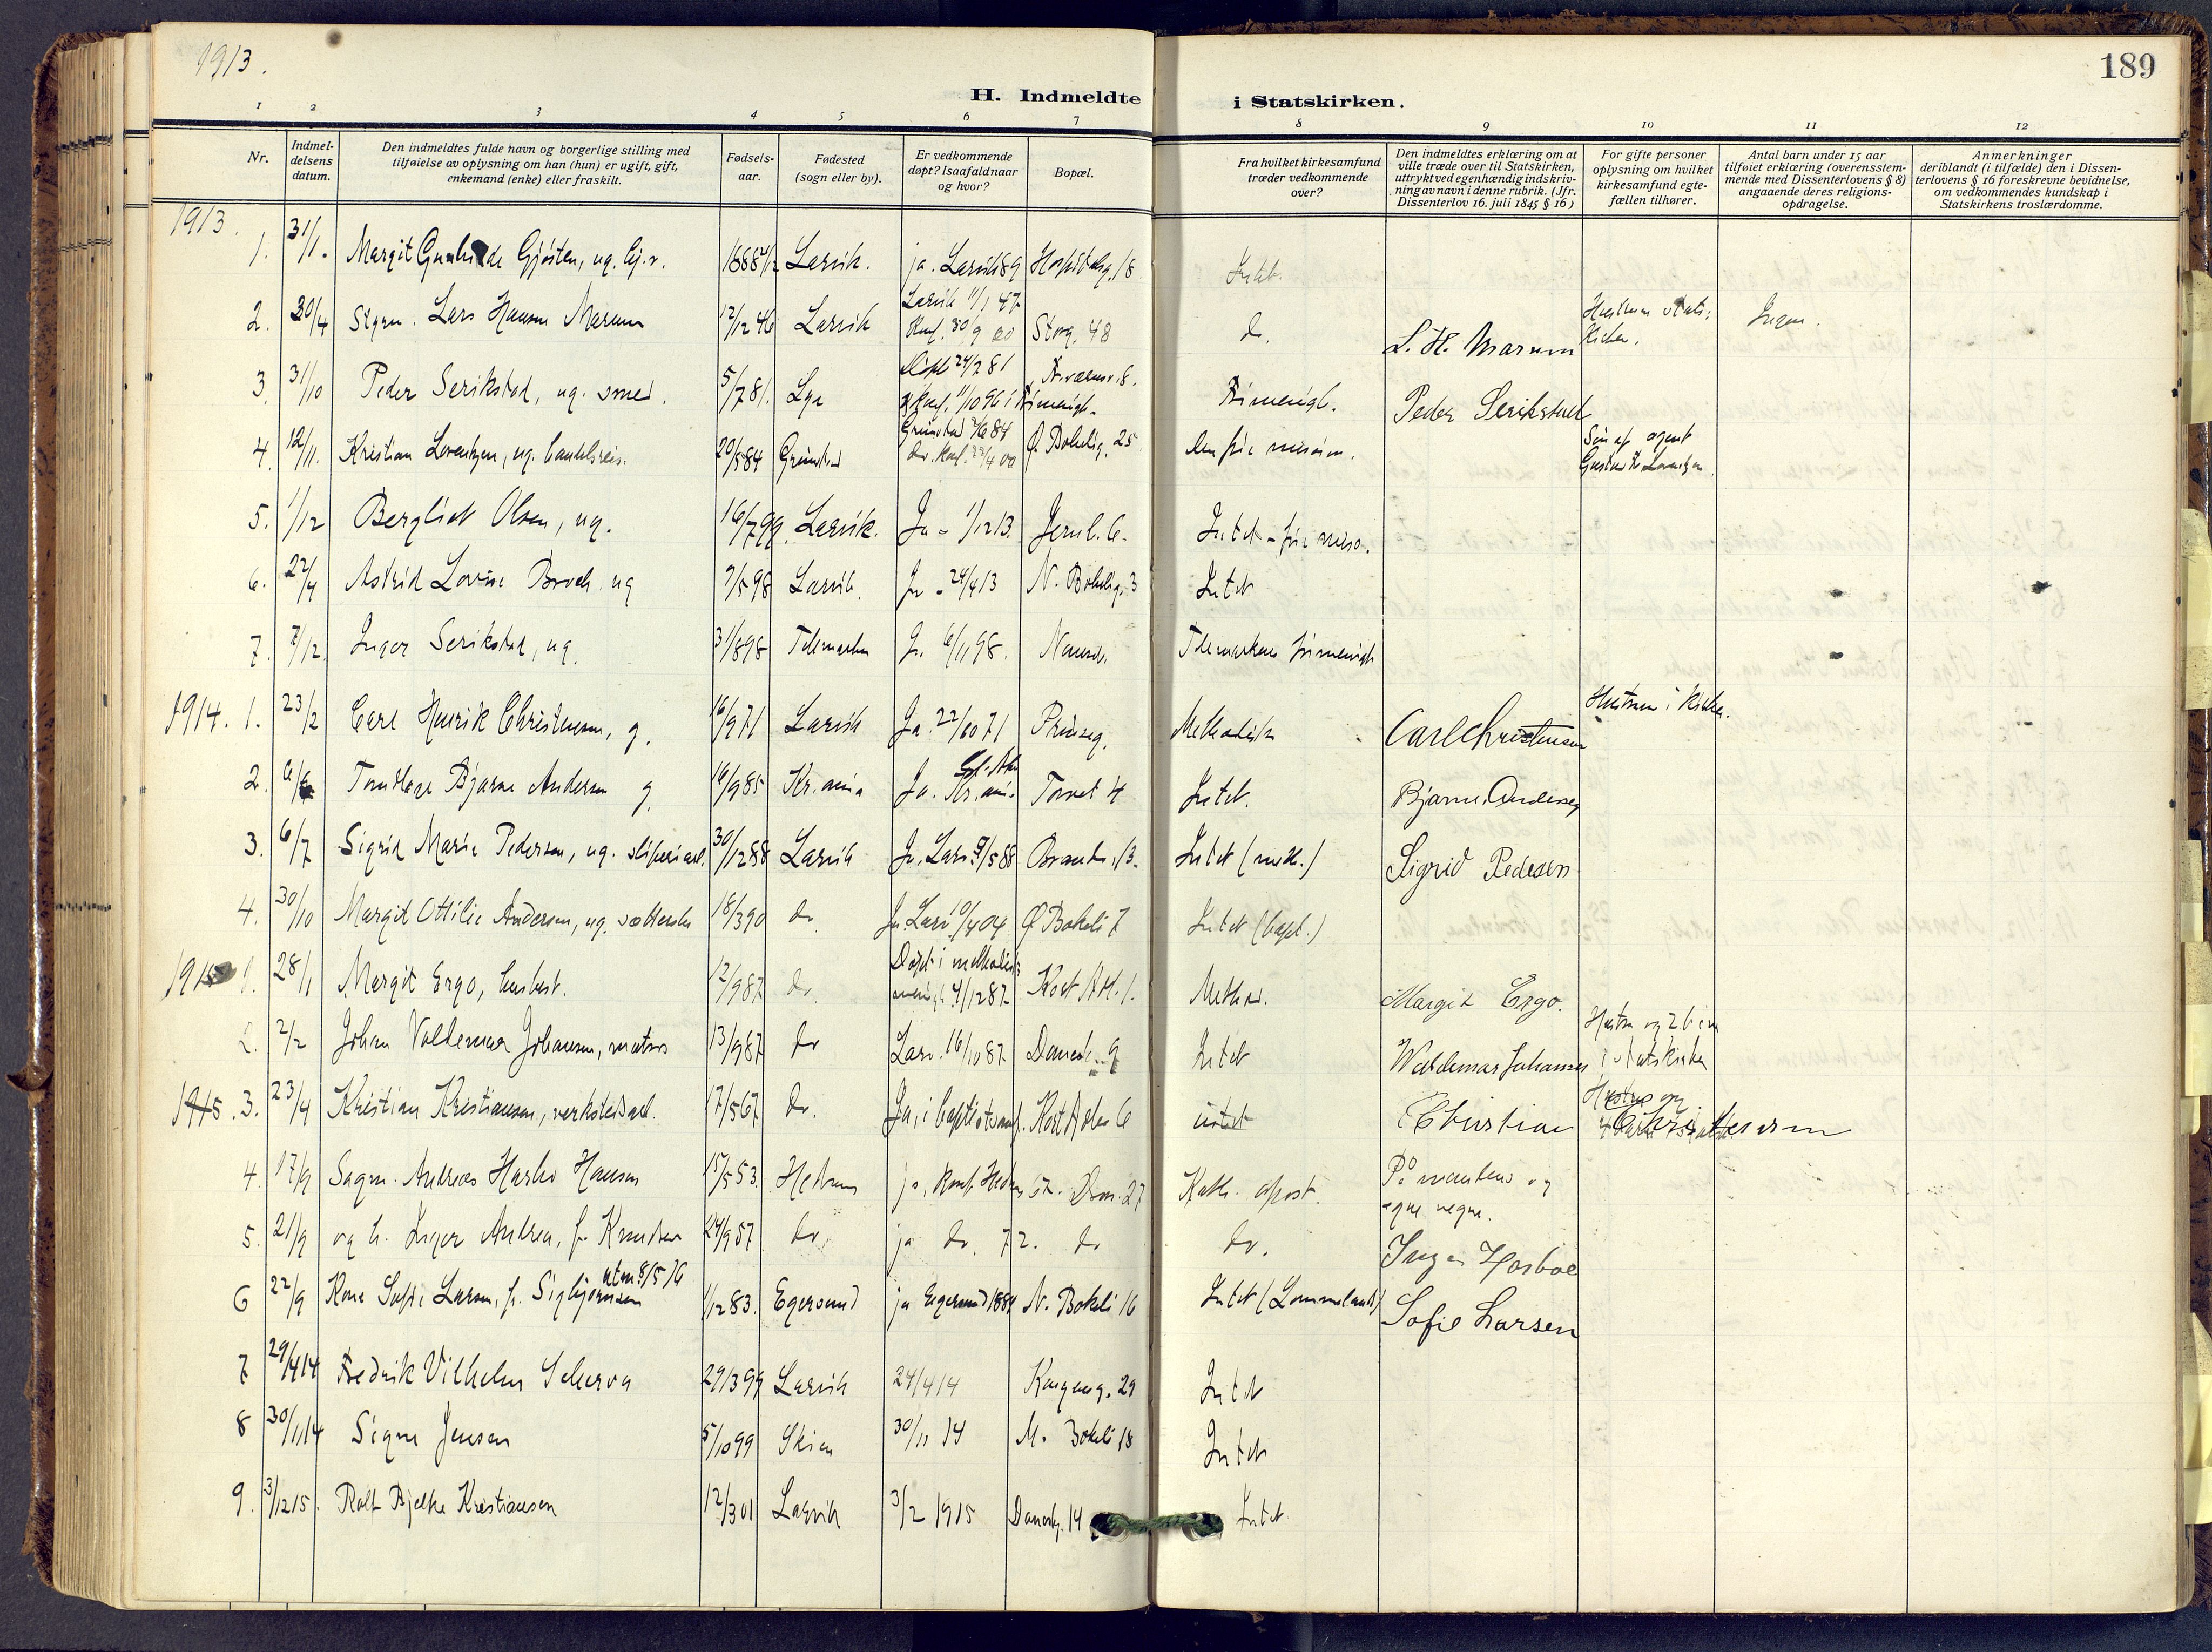 1913.
189
H. Indmeldte i Statskirken.
1 2 3 4 5 6 7 8 9 10 11 12
Nr.
Indmel-
delsens
datum.
Den indmeldtes fulde navn og borgerlige stilling med
tilføielse av oplysning om han (hun) er ugift, gift,
enkemand (enke) eller fraskilt.
Fødsels-
aar.
Fødested
(sogn eller by).
Er vedkommende
døpt? Isaafald naar
og hvor?
Bopæl.
Fra hvilket kirkesamfund
træder vedkommende
over?
Den indmeldtes erklæring om at
ville træde over til Statskirken,
uttrykt ved egenhændig indskriv-
ning av navn i denne rubrik. (Jfr.
Dissenterlov 16. juli 1845 § 16)
For gifte personer
oplysning om hvilket
kirkesamfund egte-
fællen tilhører.
Antal barn under 15 aar
tilføiet erklæring (overensstem-
mende med Dissenterlovens § 8)
angaaende deres religions-
opdragelse.
Anmerkninger
deriblandt (i tilfælde) den i Dissen-
terlovens § 16 foreskrevne bevidnelse,
om vedkommendes kundskap i
Statskirkens troslærdomme.
1913.
1. 31/1. Margit Gunhilde Gjøsten, ug. 1888 Larvik. ja. Larvik 89 Hospitalsg. 18 Intet.
2. 30/4 Sigm. Lars Hansen Marum 12/12 46 Larvik Larvik 11/1 47 Konf. 30/9 60 Storg. 48 do. L. H. Marum Hustruen stats- kirken. Ingen.
3. 31/10 Peder Serikstad, ug. smed. 5/7 81. Døpt 24/7 81 Konf. 11/10 96 i Frimenigh. Frimenigh. Peder Serikstad
4. 12/11. Kristian Lorentzen, ug. handelsreis. 20/5 84 Grimstad Grimstad do. Konf. 00 Ø. Bokelig. 25 den frie misjon. Søn af agent Gustav Lorentzen
5. 1/12 Bergliot Olsen, ug. 16/7 99. Larvik. Ja - 1/12 13. Jernb. 6. Intet - frie miss.
6. 22/4 Astrid Lovise Broch. ug 7/5 98 Larvik. Ja - 24/4 13 N. Bokelig. 3 Intet
7. 7/12. Inger Serikstad, ug. 31/8 98 Telemarken Ja. 6/11 98. Nansen. Telemarkens frimenigh
1914. 1. 23/2 Carl Henrik Christensen, g. 16/9 71 Larvik Ja. 22/10 71 Prinseg. Methodist Carl Christensen Hustruen i kirken.
2. 6/6 Bjarne Andersen g. 16/9 85 Kr.ania Ja. Kr.ania Torvet 4 Intet. Bjarne Andersen
3. 6/7 Sigrid Marie Pedersen, ug. sliperiarb. 30/12 88 Larvik Ja. Larv. 88 Brandv. 13. Intet (meth.) Sigrid Pedesen
4. 30/10 Margit Ottilie Andersen, ug. væverske 18/3 90 do. Ja. Larv. 10/4 04 Ø Bokeli 7 Intet (bapt.)
1915 1. 28/1 Margit Ergo, husbest. 12/9 87 do. Døpt i methodist menigh. 4/12 87 Kort Ad. 1. Method. Margit Ergo.
2. 2/2 Johan Valdemar Johansen, matros 13/9 87 do Larv. 16/10 87 Daneb. 9 Intet Waldemar Johansen Hustru og 2 børn i statskirken
1915. 3. 23/4 Kristian Kristiansen, verkstedarb. 17/5 67 do. Ja, i baptistsamf. Kort Adeler 6 intet Christian Christensen Hustru og 4
4. 17/9 Sagm. Andreas Harbo Hansen 15/5 53. Hedrum ja, konf. Hedrum 67. Dron. 27 Kath. apost. På mandens og egne vegne.
5. 21/9 og h. Inger Andrea, f. Knudsen 24/9 57 do. ja do. 72. do do. Inger Harboe
6 22/9 Kone Sofie Larsen, f. Sigbjørnsen utm. 8/5 16 1/12 83. Egersund ja Egersund 1884 N. Bokeli 16 Intet (Lommelands) Sofie Larsen
7 29/4 14 Fredrik Vilhelm Scherva 29/3 99 Larvik 24/4 14 Kongeg. 29 Intet
8 30/11 14 Signe Jensen 5/10 99 Skien 30/11 14 M. Bokeli 18 Intet
9. 3/12 15. Rolf Bjelke Kristiansen 12/3 01 Larvik 3/2 1915 Danesg. 14 Intet